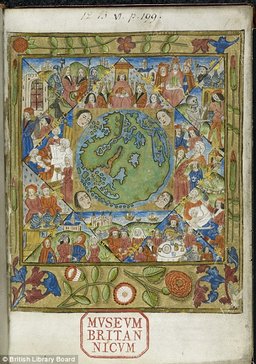 MVSEVM
BRITAN
NICVM
© British Library Board